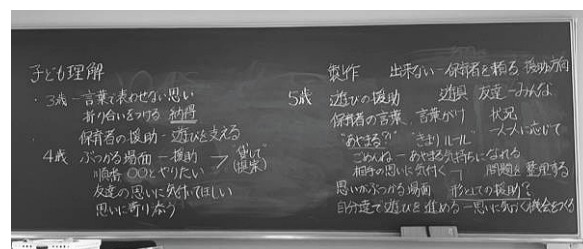 子ども理解
・3歳 ― 言葉で表わせない思い
折り合いをつける 納得
保育者の援助 ― 遊びを支える
・4歳 ぶつかる場面 ― 援助
順番 〇〇とやりたい
"貸して"
(提案)
友達の思いに気付いてほしい
思いに寄り添う
製作 出来ない ― 保育者を頼る 援助方向
5歳 遊びの援助 遊具 友達 ― みんな
保育者の言葉、言葉がけ 状況
"あやまる?" "きまりルール" 一人一人に応じて
ごめんね ― あやまる気持ちになれる
相手の思いに気付く ― 問題を整理する
思いがぶつかる場面 形としての援助
自分達で遊びを進める ― 思いに気付く機会をつくる